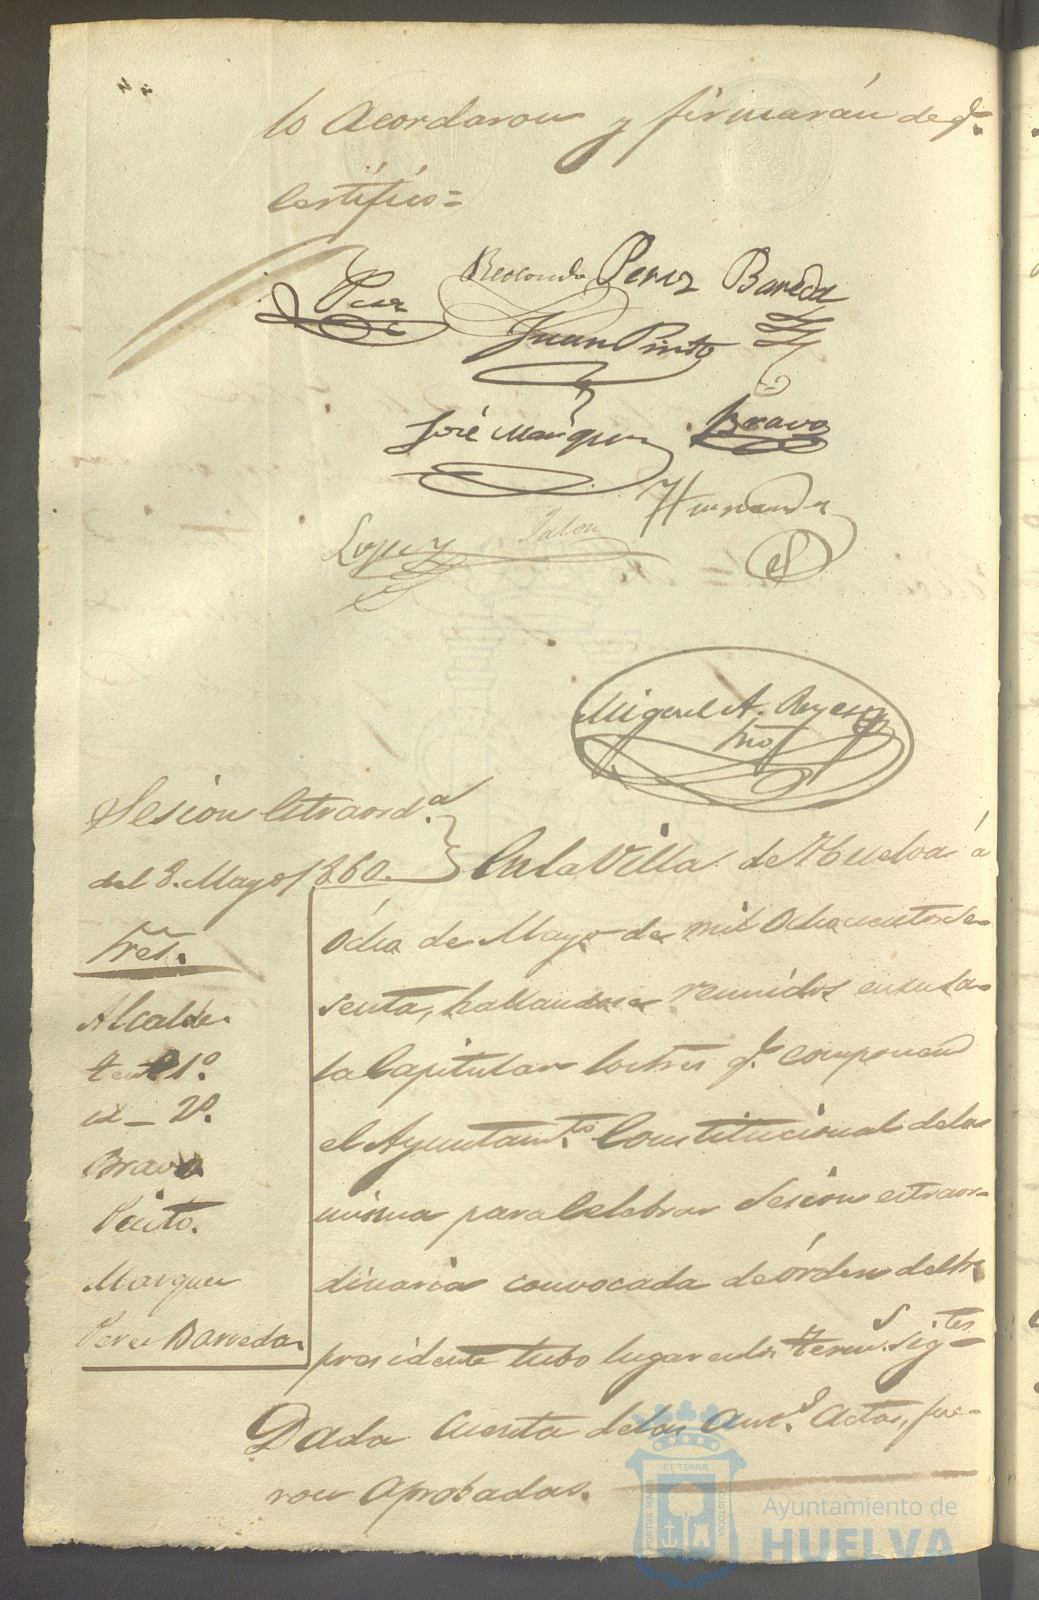 lo Acordaron y firmarán de q.e
Certifico=
Perez
Redondo Perez Barreda
Juan Pinto
José Marquez Bravo
Hernandez
Lopez Jalon
Miguel A. Reyes
Srio
Sesion Extraord.a
del 8. Mayo 1860.
En la Villa de Huelva á
Ocho de Mayo de mil Ochocientos se-
senta, hallandose reunidos en su Sa-
la Capitular los Sres q.e componen
el Ayuntam.to Constitucional de la
misma para Celebrar Sesion extraor-
dinaria convocada de órden del Sr
presidente tubo lugar en los termin.s sig.tes
Sres.
Alcalde.
ten.te 1.o
id _ 2.o
Bravo
Pinto.
Marquez
Perez Barreda
Dada Cuenta de las ant.s Actas, fue-
ron Aprobadas.
PORTUS MARIS ET TERRAE CUSTODIA
Ayuntamiento de
HUELVA